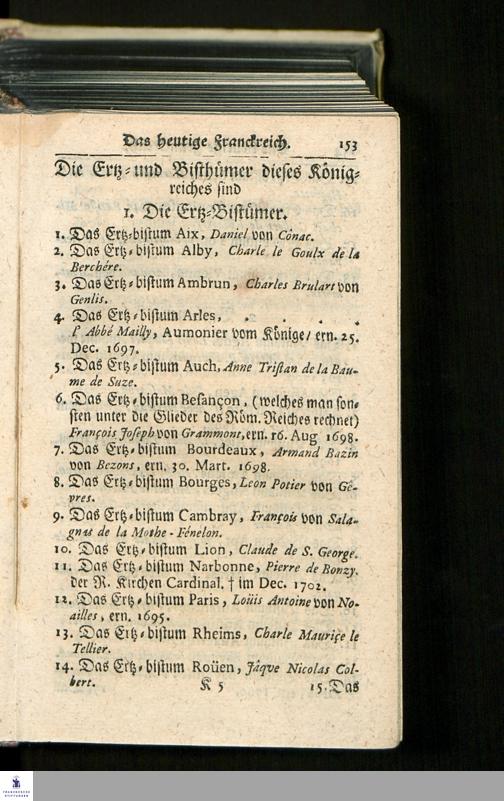 Das heutige Franckreich. 153
Die Ertz- und Bisthümer dieses König-
reiches sind
1. Die Ertz-Bistümer.
1. Das Ertz-bistum Aix, Daniel von Cônac.
2. Das Ertz-bistum Alby, Charle le Goulx de la
Berchére.
3. Das Ertz-bistum Ambrun, Charles Brulart von
Genlis.
4. Das Ertz-bistum Arles, . . . .
l' Abbé Mailly, Aumonier vom Könige/ ern. 25.
Dec. 1697.
5. Das Ertz-bistum Auch, Anne Tristan de la Bau-
me de Suze.
6. Das Ertz-bistum Besançon, (welches man son-
sten unter die Glieder des Röm. Reiches rechnet)
François Joseph von Grammont, ern. 16. Aug 1698.
7. Das Ertz-bistum Bourdeaux, Armand Bazin
von Bezons, ern. 30. Mart. 1698.
8. Das Ertz-bistum Bourges, Leon Potier von Gê-
vres.
9. Das Ertz-bistum Cambray, François von Sala-
gnac de la Mothe-Fénelon.
10. Das Ertz-bistum Lion, Claude de S. George.
11. Das Ertz-bistum Narbonne, Pierre de Bonzy.
der R. Kirchen Cardinal. † im Dec. 1702.
12. Das Ertz-bistum Paris, Loüis Antoine von No-
ailles, ern. 1695.
13. Das Ertz-bistum Rheims, Charle Mauriçe le
Tellier.
14. Das Ertz-bistum Roüen, Jâqve Nicolas Col-
bert. K 5 15. Das
FRANCKESCHE
STIFTUNGEN